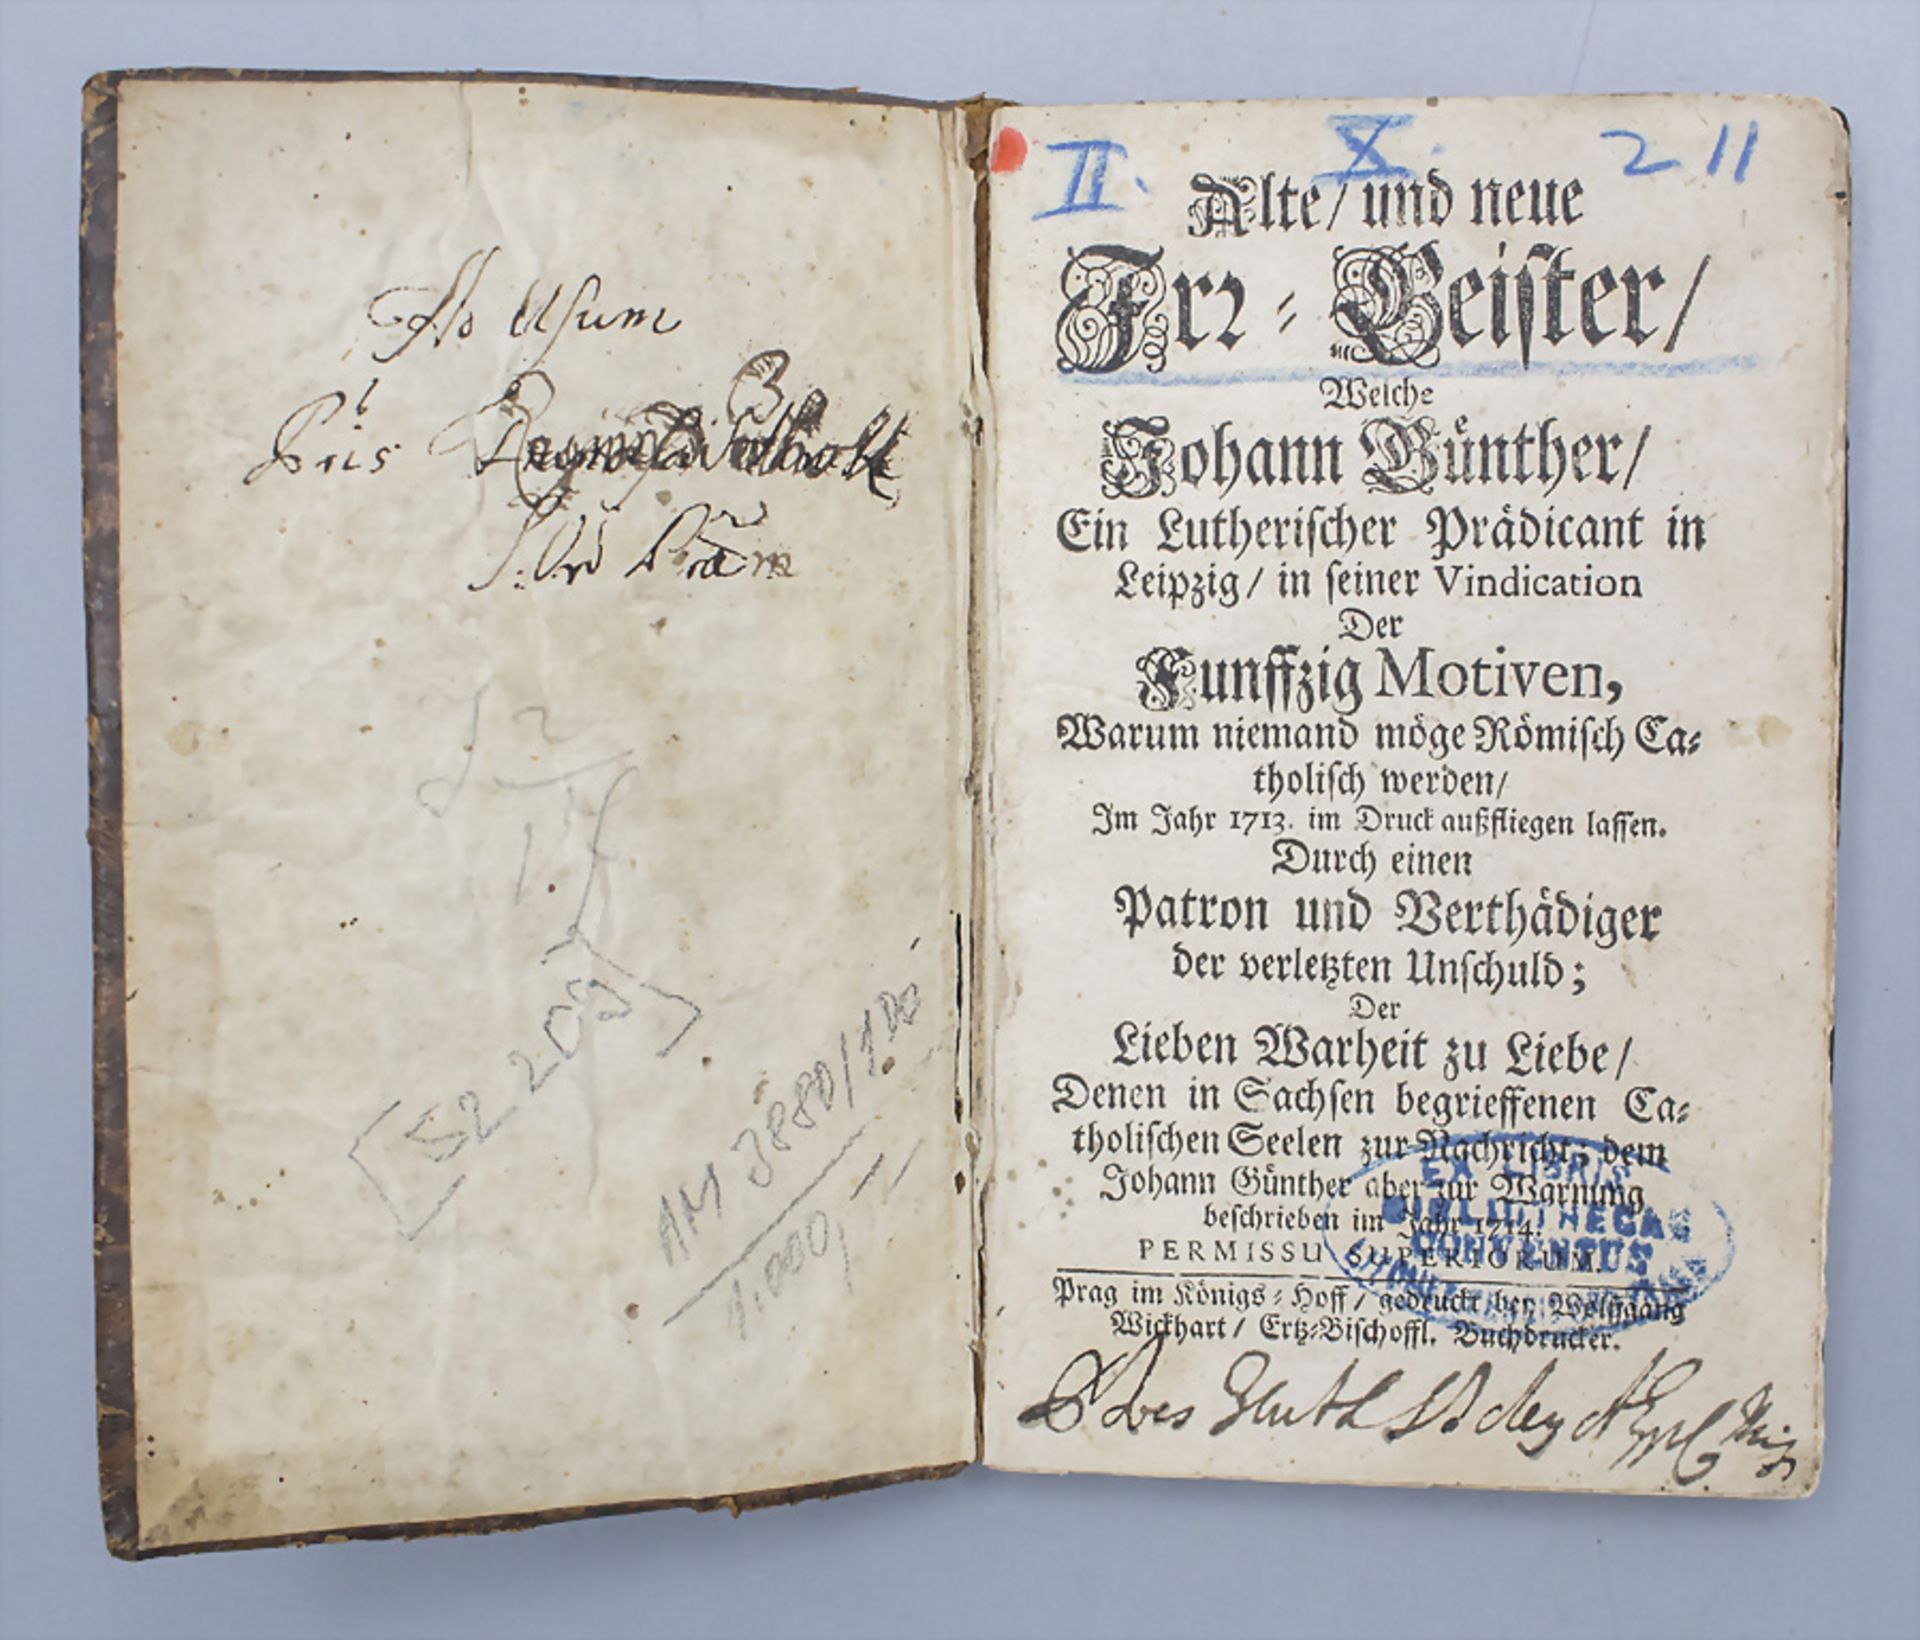 Ad Usum
S2 203
3880/
1.000,
II. X. 2 11
Alte/ und neue
Irꝛ-Geiſter/
Welche
Johann Günther/
Ein Lutheriſcher Prädicant in
Leipzig/ in ſeiner Vindication
Der
Funffzig Motiven,
Warum niemand möge Römiſch Ca-
tholiſch werden/
Im Jahr 1713. im Druck außfliegen laſſen.
Durch einen
Patron und Verthädiger
der verletzten Unſchuld;
Der
Lieben Warheit zu Liebe/
Denen in Sachſen begrieffenen Ca-
tholiſchen Seelen zur Nachricht; dem
Johann Günther aber zur Warnung
beſchrieben im Jahr 1714.
PERMISSU SUPERIORUM.
Prag im Königs-Hoff/ gedruckt bey Wolffgang
Wickhart/ Ertz-Biſchoffl. Buchdrucker.
EX LIBRIS
BIBLIOTHECAE
CONVENTUS